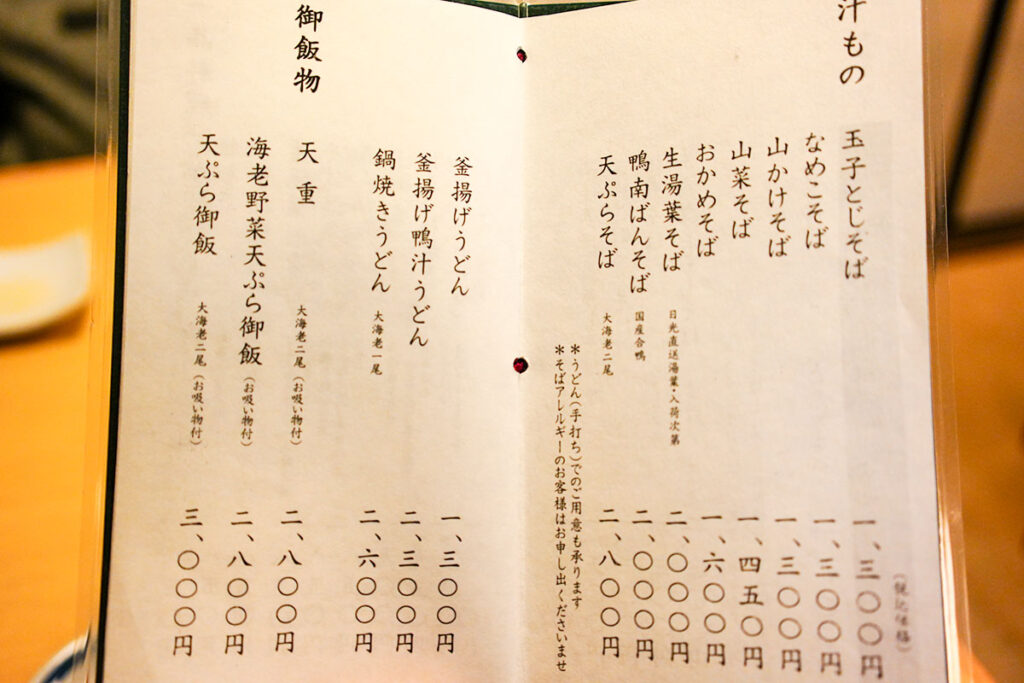 汁もの
玉子とじそば 一、三〇〇円
(税込価格)
なめこそば 一、三〇〇円
山かけそば 一、三〇〇円
山菜そば 一、四五〇円
おかめそば 一、六〇〇円
生湯葉そば 日光直送湯葉・入荷次第 二、〇〇〇円
鴨南ばんそば 国産合鴨 二、〇〇〇円
天ぷらそば 大海老二尾 二、八〇〇円
*うどん(手打ち)でのご用意も承ります
*そばアレルギーのお客様はお申し出くださいませ
釜揚げうどん 一、三〇〇円
釜揚げ鴨汁うどん 二、三〇〇円
鍋焼きうどん 大海老一尾 二、六〇〇円
御飯物
天重 大海老二尾(お吸い物付) 二、八〇〇円
海老野菜天ぷら御飯 (お吸い物付) 二、八〇〇円
天ぷら御飯 大海老二尾(お吸い物付) 三、〇〇〇円